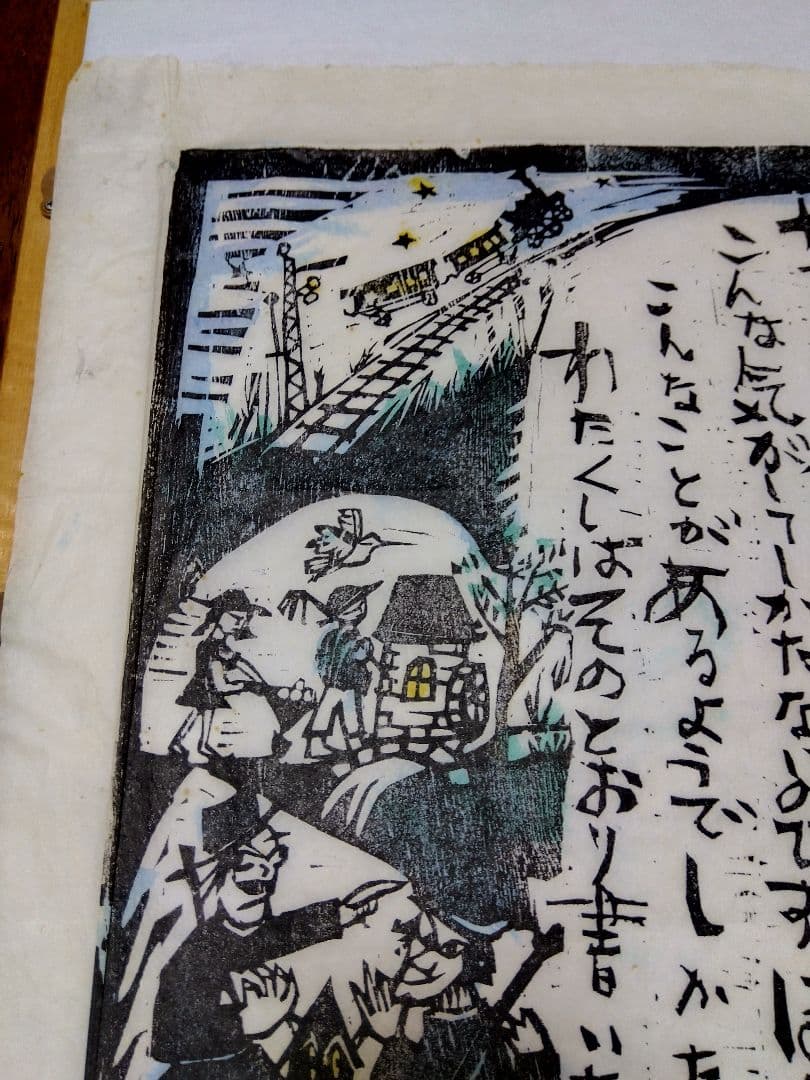 こんな気がしてしかたないのです ほ
こんなことがあるようでしかた
わたくしはそのとおり書い